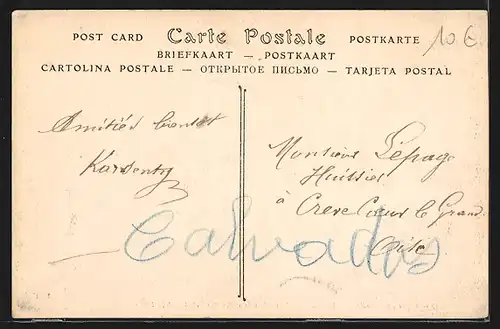 POST CARD Carte Postale POSTKARTE
BRIEFKAART — POSTKAART
CARTOLINA POSTALE — ОТКРЫТОЕ ПИСЬМО — TARJETA POSTAL
10 €
Amitiés
Monsieur Lepage
Huissier
à Creve Cœur le Grand
Oise
Calvados